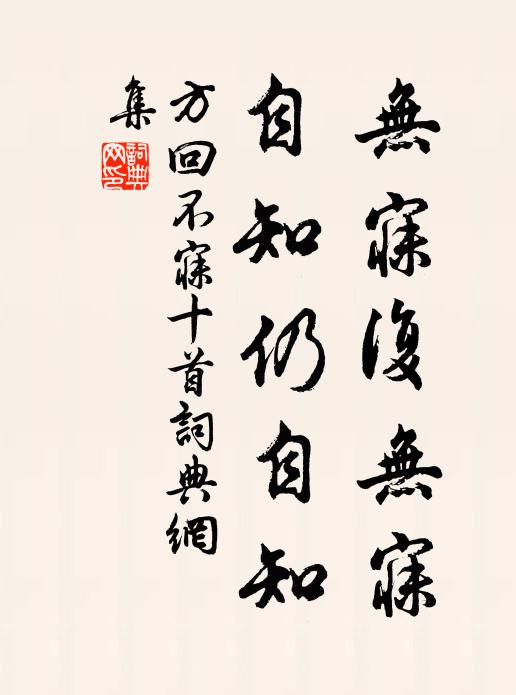 無寐復無寐
自知仍自知
方回不寐十首詞典網
集
詞典網印